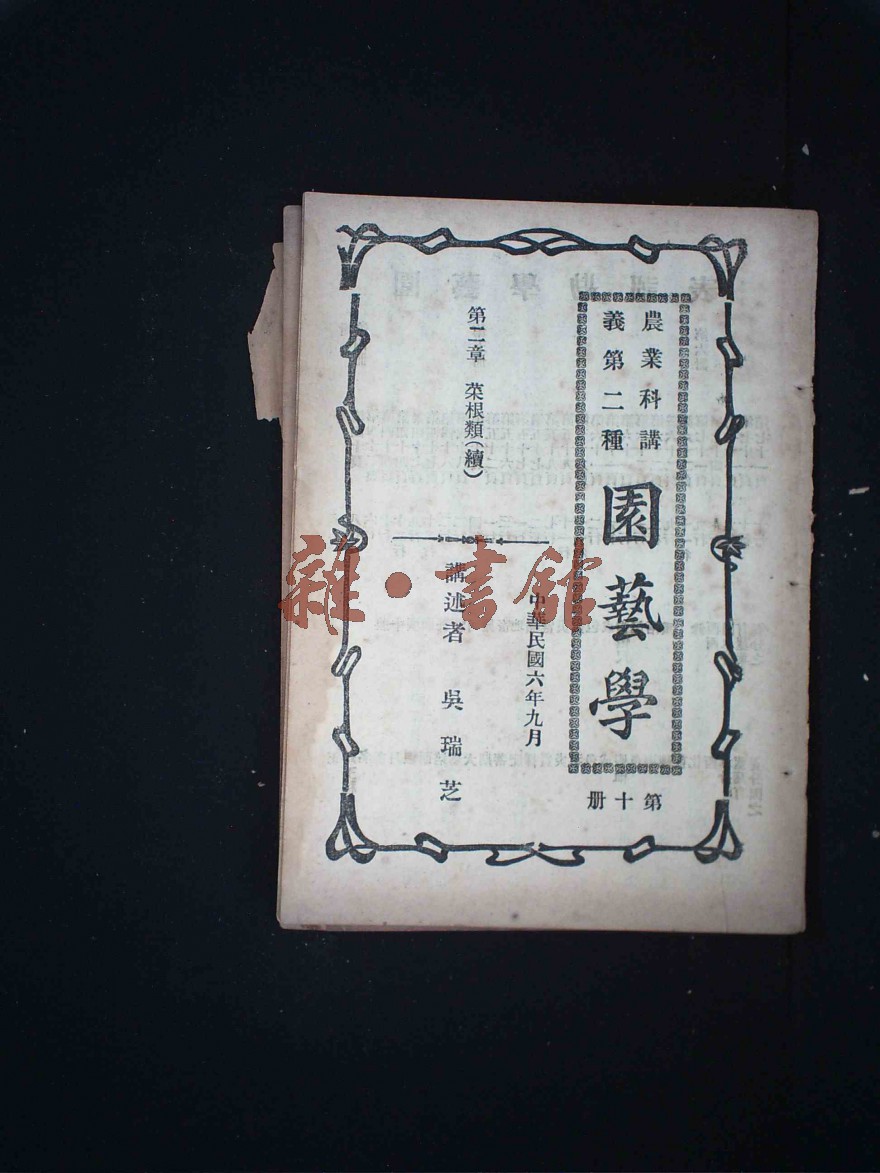 農業科講
義第二種
園藝學
第十册
中華民國六年九月
第二章　菜根類(續)
講述者　吳瑞芝
雜·書館